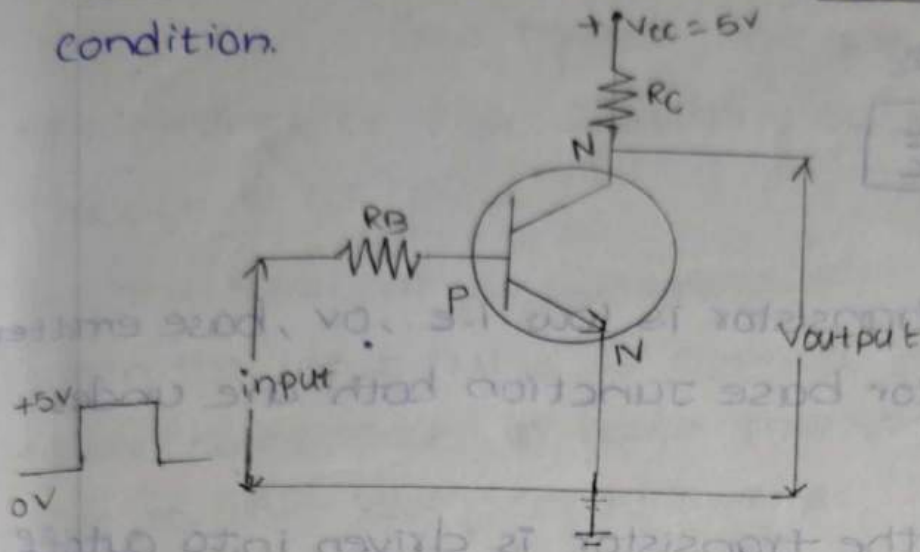 condition.
+ Vcc = 5V
RC
N
RB
P
N
input
Voutput
+5V
0V